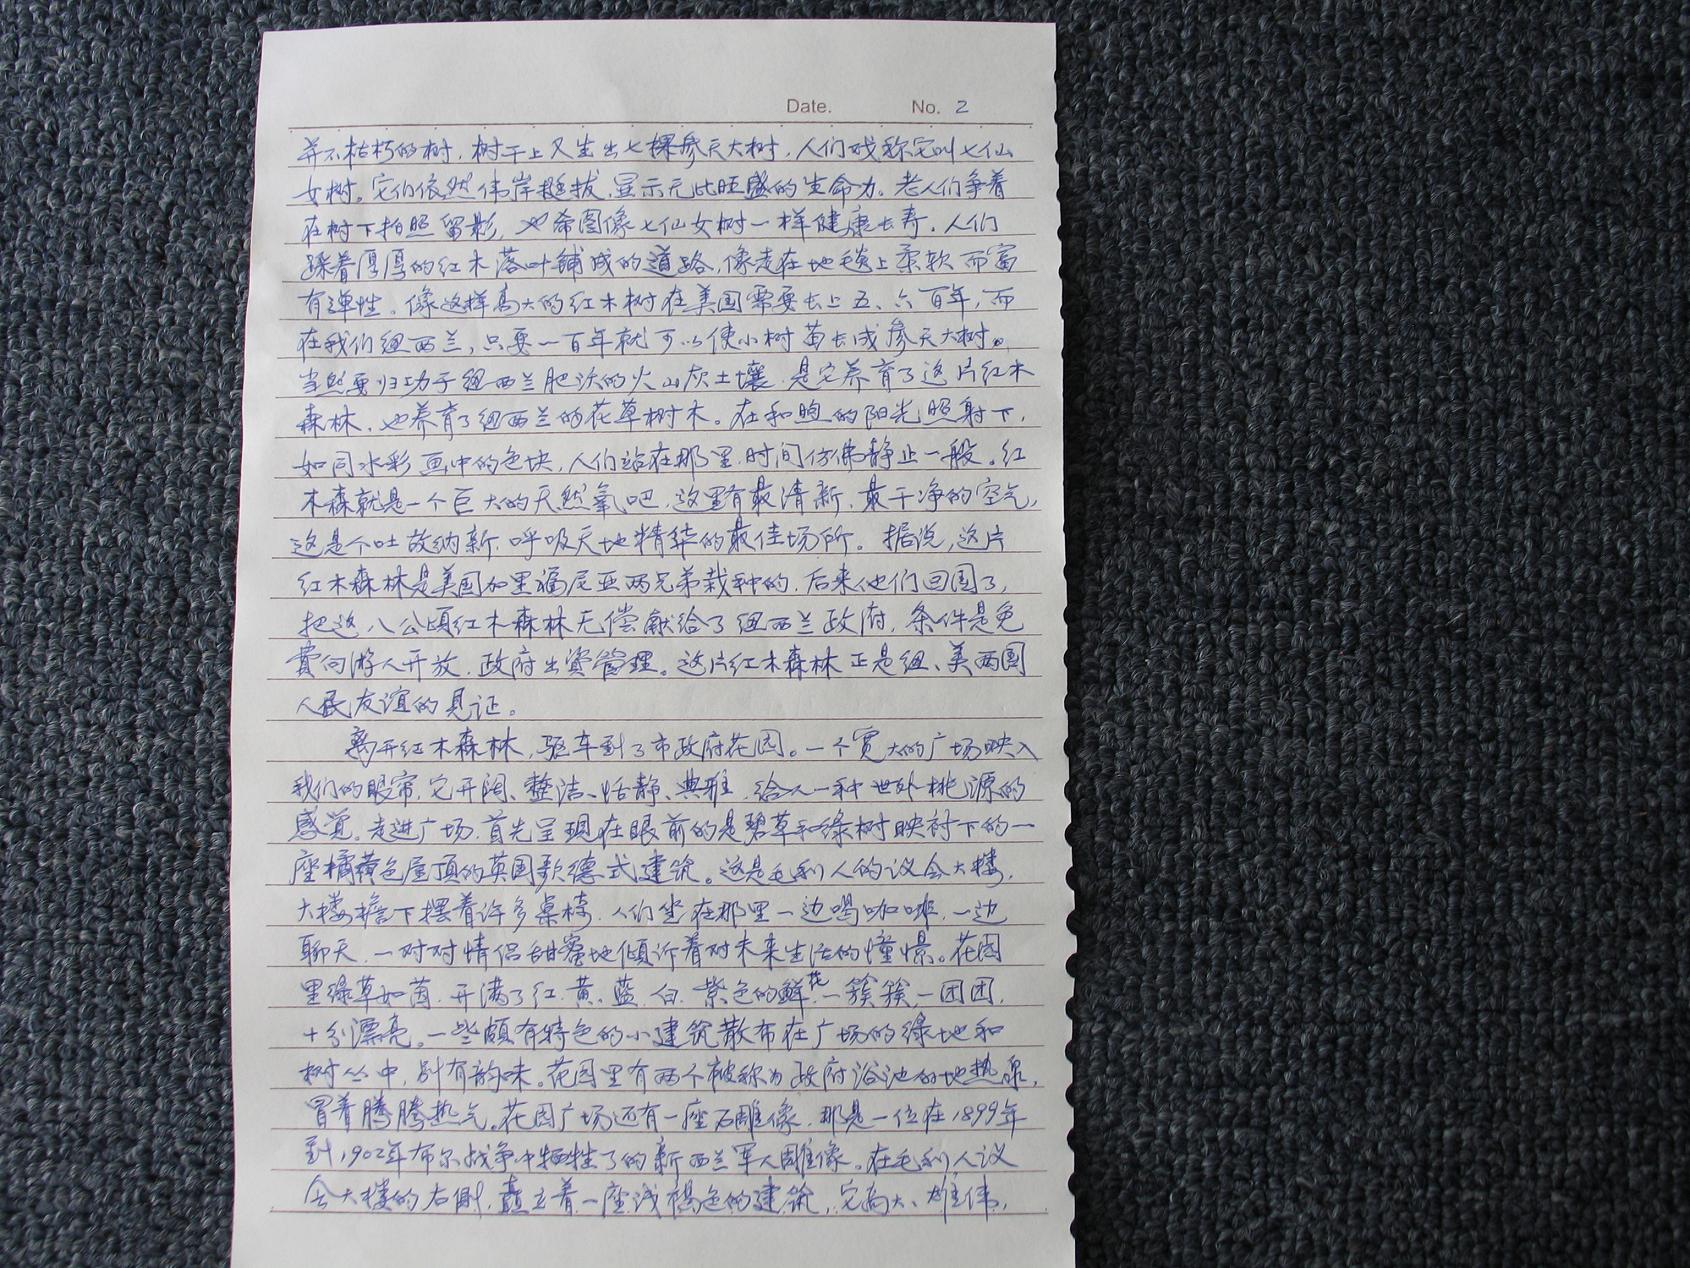 Date. No. 2
并不枯朽的树，树干上又生出七棵参天大树，人们戏称它叫七仙
女树。它们依然伟岸挺拔，显示无比旺盛的生命力。老人们争着
在树下拍照留影，也希图像七仙女树一样健康长寿。人们
踩着厚厚的红木落叶铺成的道路，像走在地毯上柔软而富
有弹性。像这样高大的红木树在美国需要长上五、六百年，而
在我们纽西兰，只要一百年就可以使小树苗长成参天大树。
当然要归功于纽西兰肥沃的火山灰土壤，是它养育了这片红木
森林，也养育了纽西兰的花草树木。在和煦的阳光照射下，
如同水彩画中的色块，人们站在那里，时间仿佛静止一般。红
木森就是一个巨大的天然氧吧，这里有最清新，最干净的空气，
这是个吐故纳新，呼吸天地精华的最佳场所。据说，这片
红木森林是美国加里福尼亚两兄弟栽种的，后来他们回国了，
把这八公顷红木森林无偿献给了纽西兰政府，条件是免
费向游人开放，政府出资管理。这片红木森林正是纽、美两国
人民友谊的见证。
离开红木森林，驱车到了市政府花园。一个宽大的广场映入
我们的眼帘，它开阔、整洁、恬静、典雅，给人一种世外桃源的
感觉。走进广场，首先呈现在眼前的是碧草和绿树映衬下的一
座橘黄色屋顶的英国歌德式建筑。这是毛利人的议会大楼，
大楼檐下摆着许多桌椅，人们坐在那里一边喝咖啡，一边
聊天，一对对情侣甜蜜地倾诉着对未来生活的憧憬。花园
里绿草如茵，开满了红、黄、蓝、白、紫色的鲜花，一簇簇，一团团，
十分漂亮。一些颇有特色的小建筑散布在广场的绿地和
树丛中，别有韵味。花园里有两个被称为政府浴池的地热泉，
冒着腾腾热气。花园广场还有一座石雕像，那是一位在1899年
到1902年布尔战争中牺牲了的新西兰军人雕像。在毛利人议
会大楼的右侧，矗立着一座浅褐色的建筑，它高大、雄伟，